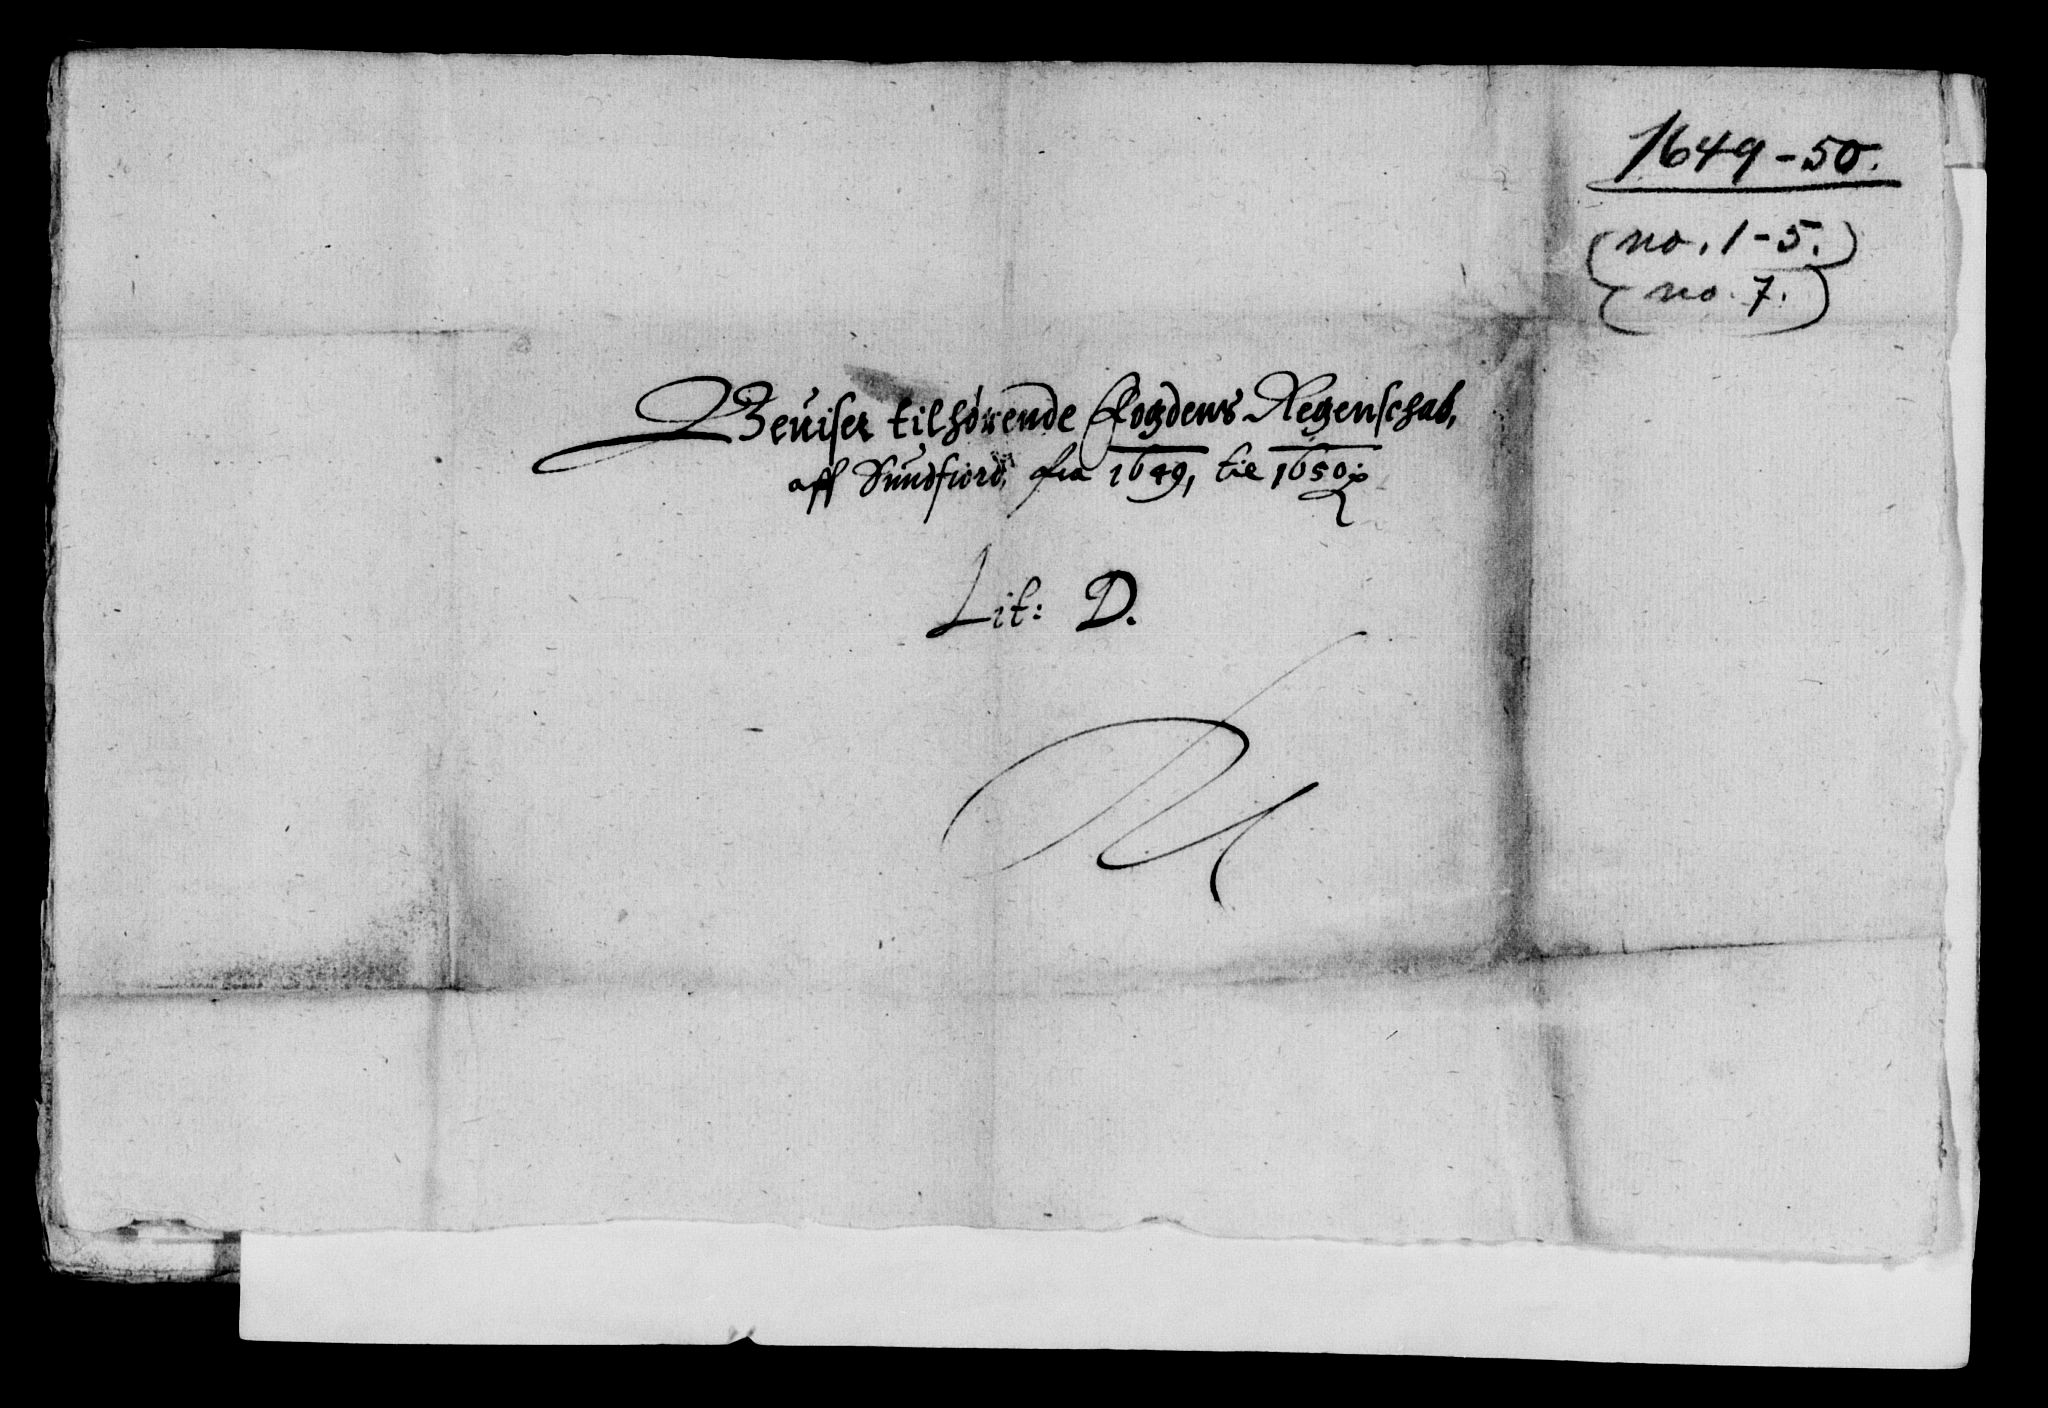 1649-50.
no. 1-5.
no. 7.
Beviser tilhørende Fogdens Regenschab,
aff Sundfiord, fra 1649, til 1650
Lit: D.